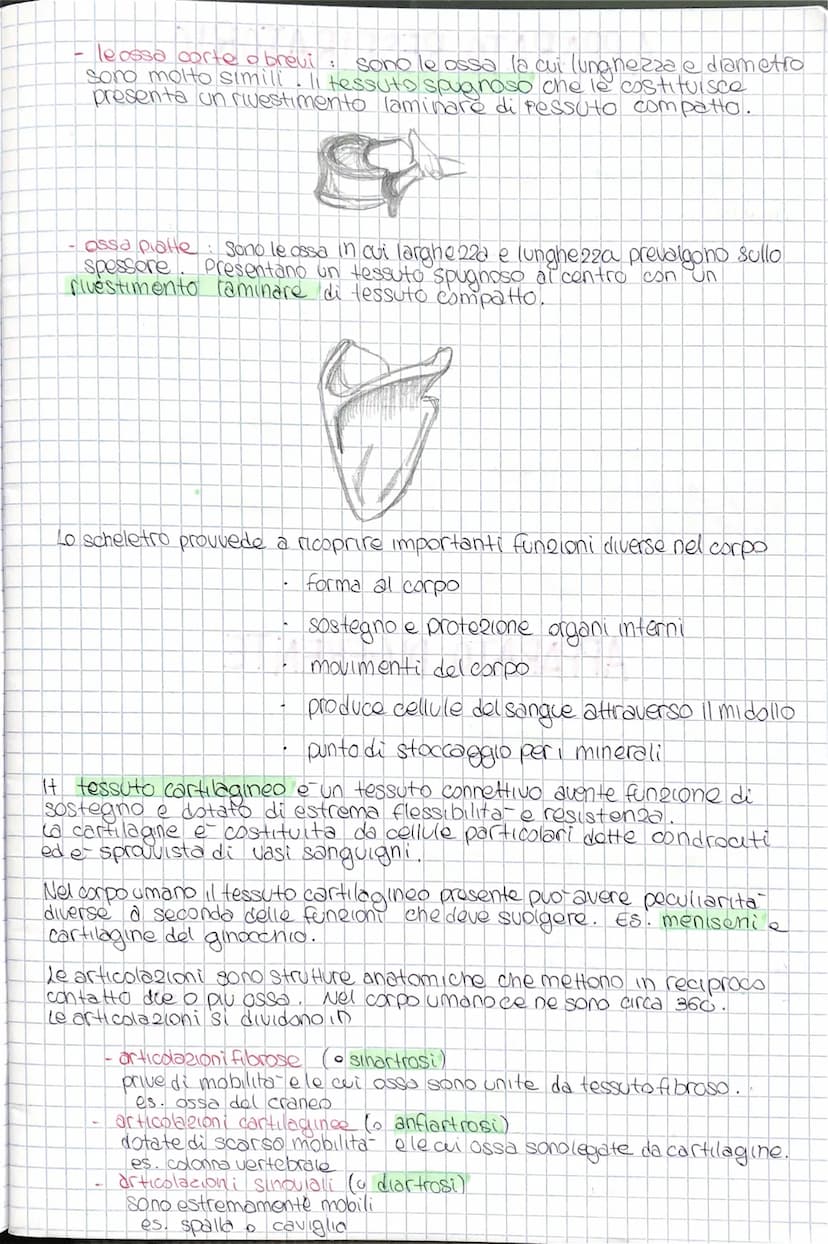 - le ossa corte o brevi : sono le ossa la cui lunghezza e diametro
sono molto simili. Il tessuto spugnoso che le costituisce
presenta un rivestimento laminare di tessuto compatto.
- ossa piatte : sono le ossa in cui larghezza e lunghezza prevalgono sullo
spessore. Presentano un tessuto spugnoso al centro con un
rivestimento laminare di tessuto compatto.
Lo scheletro provvede a ricoprire importanti funzioni diverse nel corpo
· forma al corpo
· sostegno e protezione organi interni
· movimenti del corpo
· produce cellule del sangue attraverso il midollo
· punto di stoccaggio per i minerali
Il tessuto cartilagineo è un tessuto connettivo avente funzione di
sostegno e dotato di estrema flessibilità e resistenza.
La cartilagine è costituita da cellule particolari dette condrociti
ed è sprovvista di vasi sanguigni.
Nel corpo umano il tessuto cartilagineo presente può avere peculiarità
diverse a seconda delle funzioni che deve svolgere. Es. menischi e
cartilagine del ginocchio.
Le articolazioni sono strutture anatomiche che mettono in reciproco
contatto due o più ossa. Nel corpo umano ce ne sono circa 360.
Le articolazioni si dividono in
- articolazioni fibrose (o sinartrosi)
prive di mobilità e le cui ossa sono unite da tessuto fibroso.
es. ossa del craneo
- articolazioni cartilaginee (o anfiartrosi)
dotate di scarsa mobilità e le cui ossa sono legate da cartilagine.
es. colonna vertebrale
- articolazioni sinoviali (o diartrosi)
sono estremamente mobili
es. spalla o caviglia